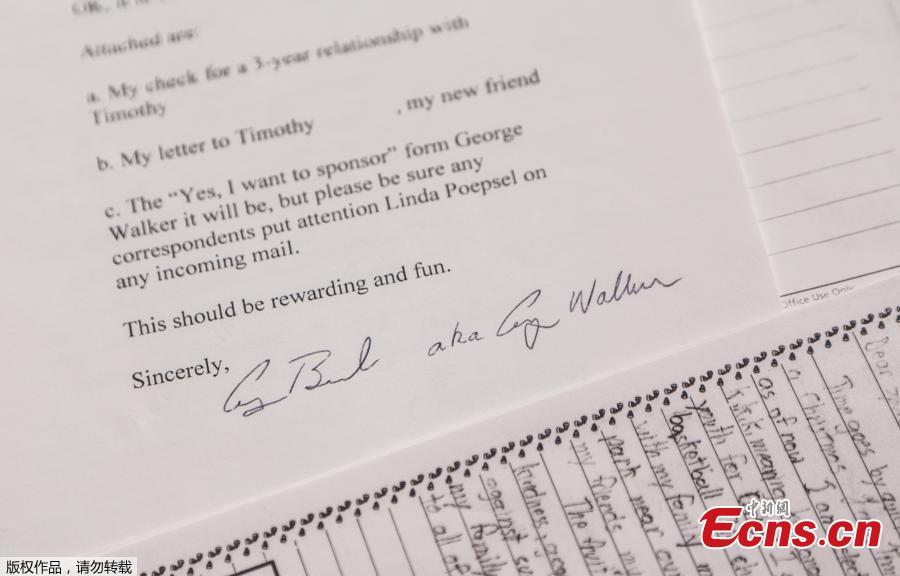 OK, it is
Attached are:
a. My check for a 3-year relationship with
Timothy
b. My letter to Timothy , my new friend
c. The “Yes, I want to sponsor” form George
Walker it will be, but please be sure any
correspondents put attention Linda Poepsel on
any incoming mail.
This should be rewarding and fun.
Sincerely,
aka Walker
Office Use Only
Dear
Time goes by
Christmas I
as of now
meaning
youth for
basketball
with my family
park near our
my friends
The
kindness
against
my family
all of
中新网
Ecns.cn
版权作品，请勿转载